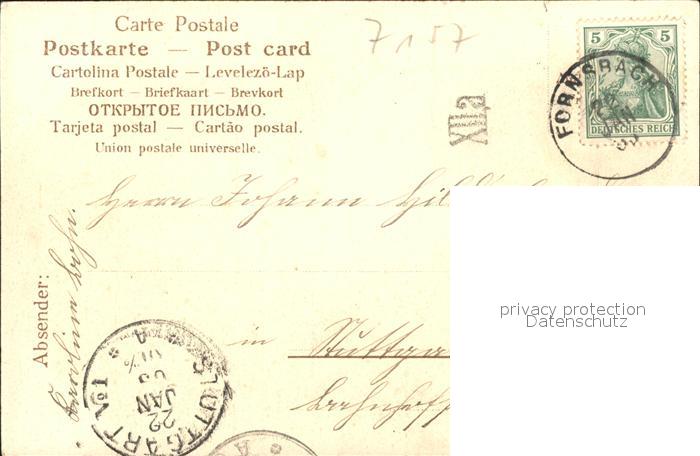 Carte Postale
Postkarte — Post card
Cartolina Postale — Levelező-Lap
Brefkort — Briefkaart — Brevkort
ОТКРЫТОЕ ПИСЬМО.
Tarjeta postal — Cartão postal.
Union postale universelle.
7157
XIIa
5 5
DEUTSCHES REICH
FORNSBACH
JAN
Herrn Johann
in Stuttga
Bahnhof
privacy protection
Datenschutz
Absender:
STUTTGART No1
22
JAN
A